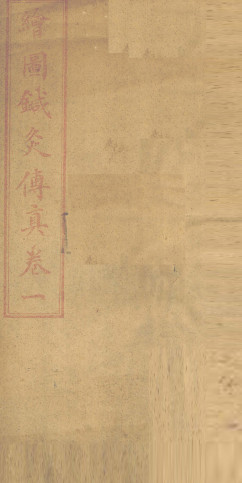 繪圖鍼灸傳真卷一